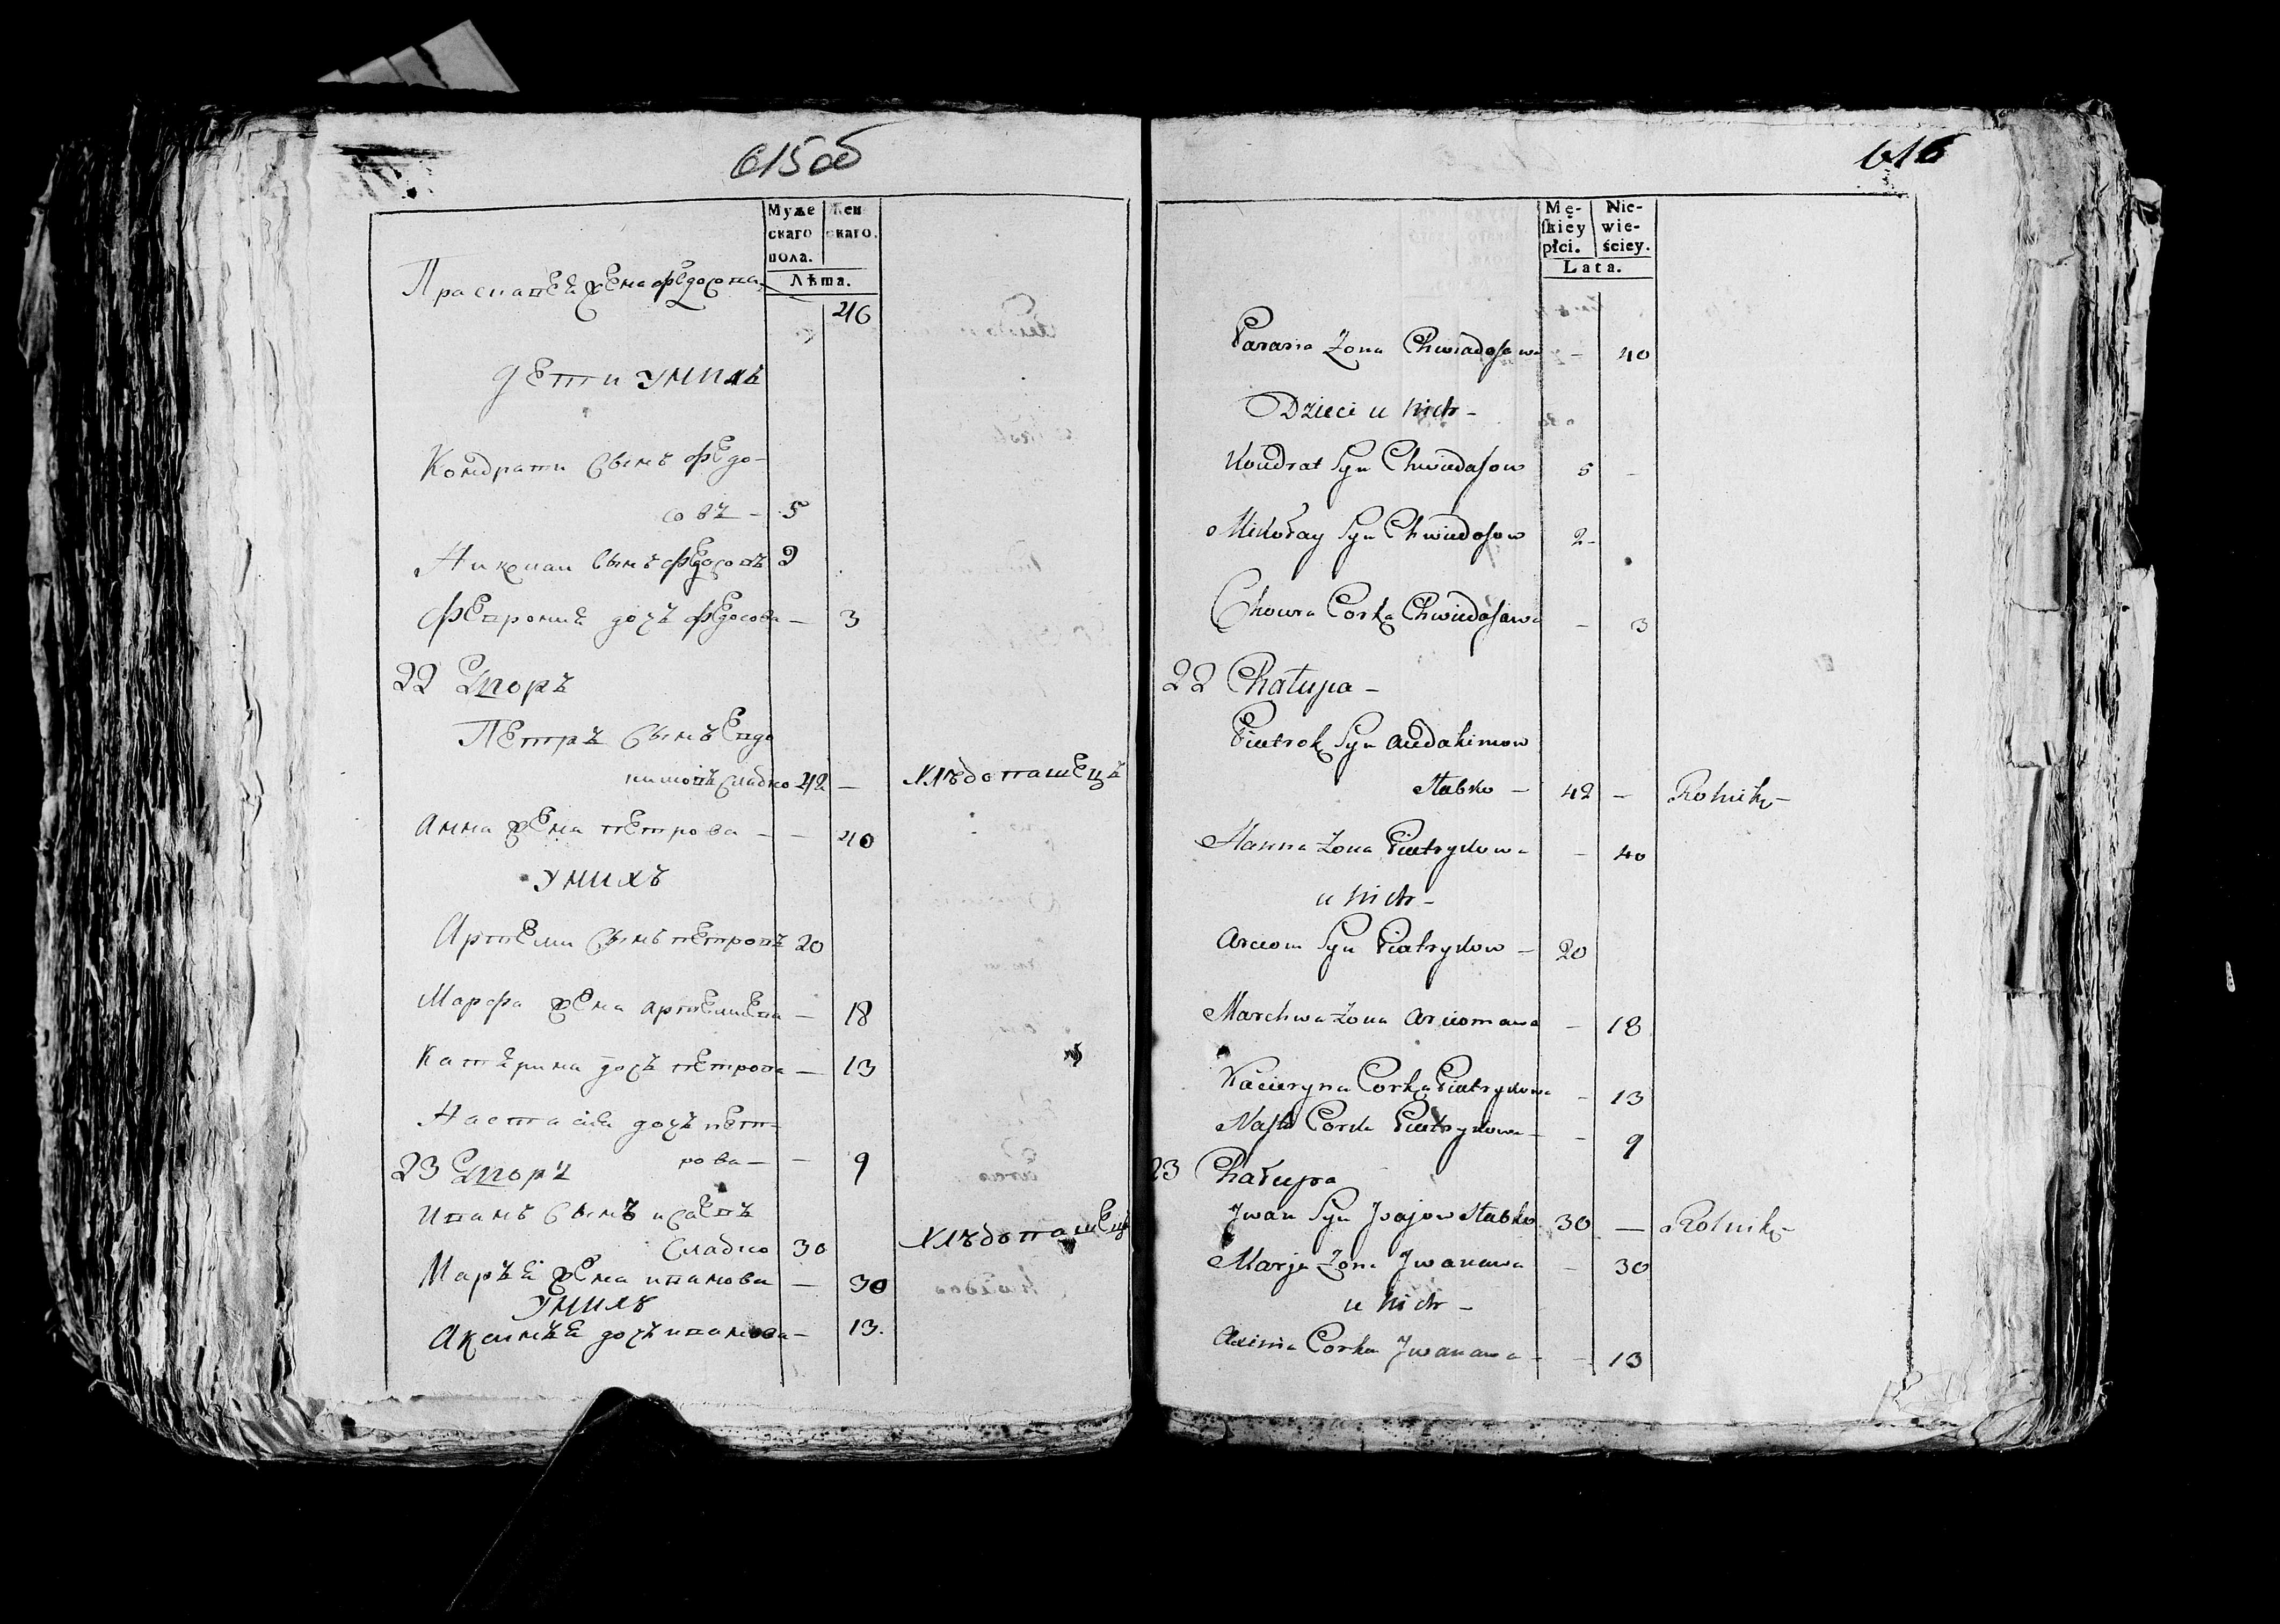 615об
Муже
скаго
пола.
Жен
скаго.
Лѣта.
Прасковея жена федосова
40
дети у нихъ
Кондрати сынъ федо-
совъ - 5
Николаи сынъ федосовъ 2
Февроние дочъ федосова - 3
22 Дворъ
Петръ сынъ Евдо
кимовъ Слабко 42 - хлѣбопашецъ
Анна жена петрова - - 40
У нихъ
Артеми сынъ петровъ 20
Марфа жена артемиева - 18
Катерина дочъ петрова - 13
Настасия дочъ пет-
рова - - 9
23 Дворъ
Иванъ сынъ исаевъ
Слабко 30 хлѣбопашецъ
Маръя жена иванова - 30
У нихъ
Аксинья дочъ иванова - 13.
616
Mę-
ſkiey
płci.
Nie-
wie-
ściey.
Lata.
Parasia Zona Chwiadosowa - 40
Dzieci u nich -
Kondrat Syn Chwiedosow 5 -
Mikołay Syn Chwiedosow 2 -
Chowra Corka Chwiedosowa - 3
22 Chałupa -
Piatrok Syn Audakimow
Słabko - 42 - Rolnik -
Hanna Zona Piatrykowa - 40
u nich -
Arciom Syn Piatrykow - 20
Marchwa Zona Arciomawa - 18
Kacieryna Corka Piatrykowa - 13
Nasta Corka Piatrykowa - - 9
23 Chałupa
Jwan Syn Jsajow Słabko 30 - Rolnik -
Marja Zona Jwanawa - 30
u nich -
Axinia Corka Jwanawa - - 13